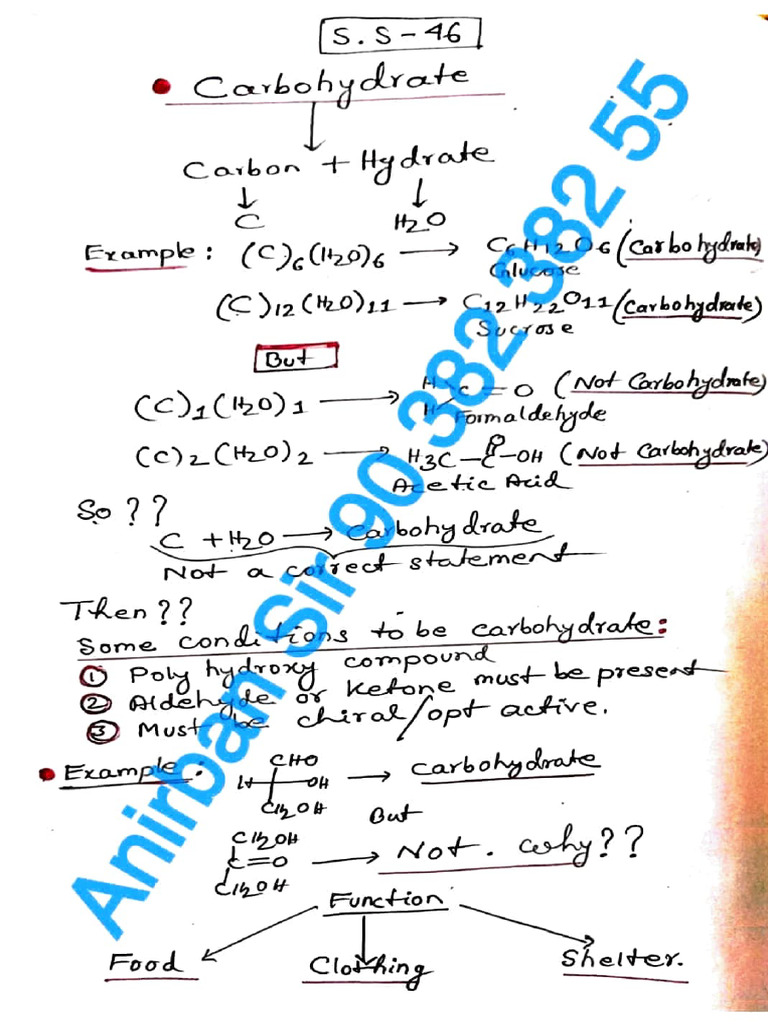 S.S-46
• Carbohydrate
Carbon + Hydrate
C H2O
Example: (C)6(H2O)6 → C6H12O6 (Carbohydrate)
Glucose
(C)12(H2O)11 → C12H22O11 (Carbohydrate)
Sucrose
But
(C)1(H2O)1 → H H C=O (Not Carbohydrate)
Formaldehyde
(C)2(H2O)2 → H3C-C-OH (Not Carbohydrate)
O
Acetic Acid
So ??
C + H2O → Carbohydrate
Not a correct statement
Then ??
Some conditions to be carbohydrate:
① Poly hydroxy compound
② Aldehyde or Ketone must be present
③ Must be chiral/opt active.
• Example:
CHO
H OH → Carbohydrate
CH2OH
But
CH2OH
C=O → Not. why??
CH2OH
Function
Food Clothing Shelter.
Anirban Sir 90 382 382 55